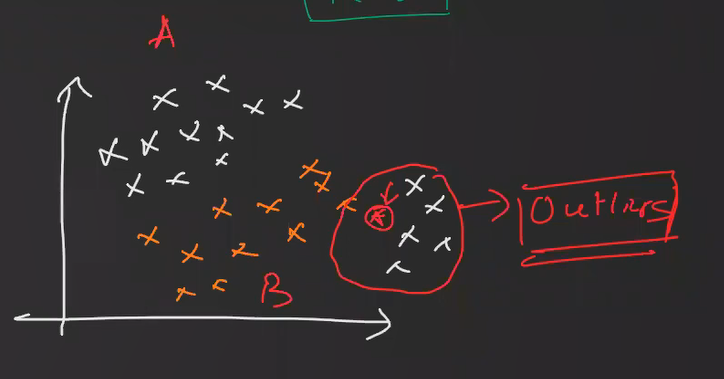 A
Outliers
B